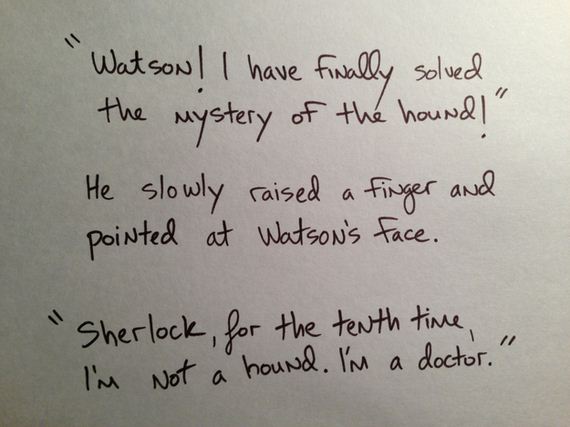 "Watson! I have finally solved
the mystery of the hound!"
He slowly raised a finger and
pointed at Watson's face.
"Sherlock, for the tenth time,
I'm not a hound. I'm a doctor."